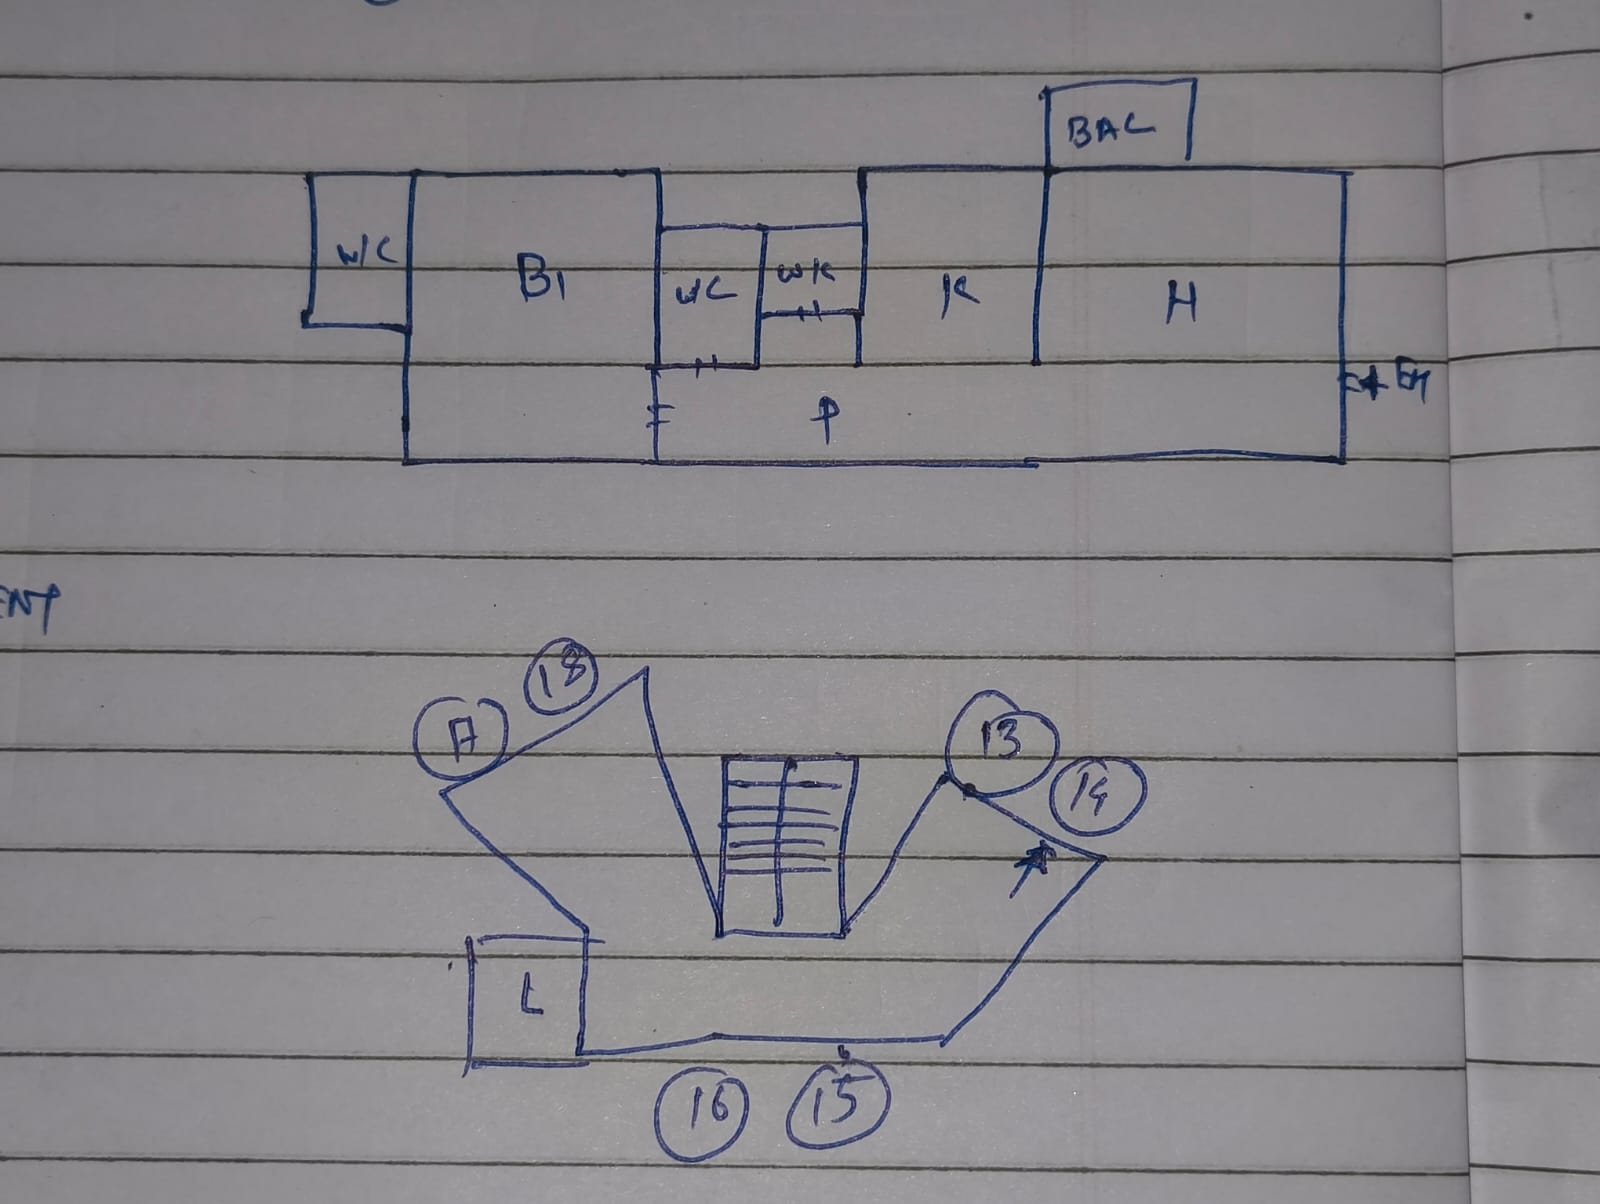 BAL
W/C
B1
WC
WC
K
H
P
ENT
18
13
14
L
16
15